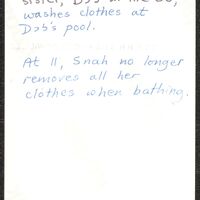 sister, Dɔɔ
washes clothes at
Dɔɔ's pool.
At 11, Snah no longer
removes all her
clothes when bathing.